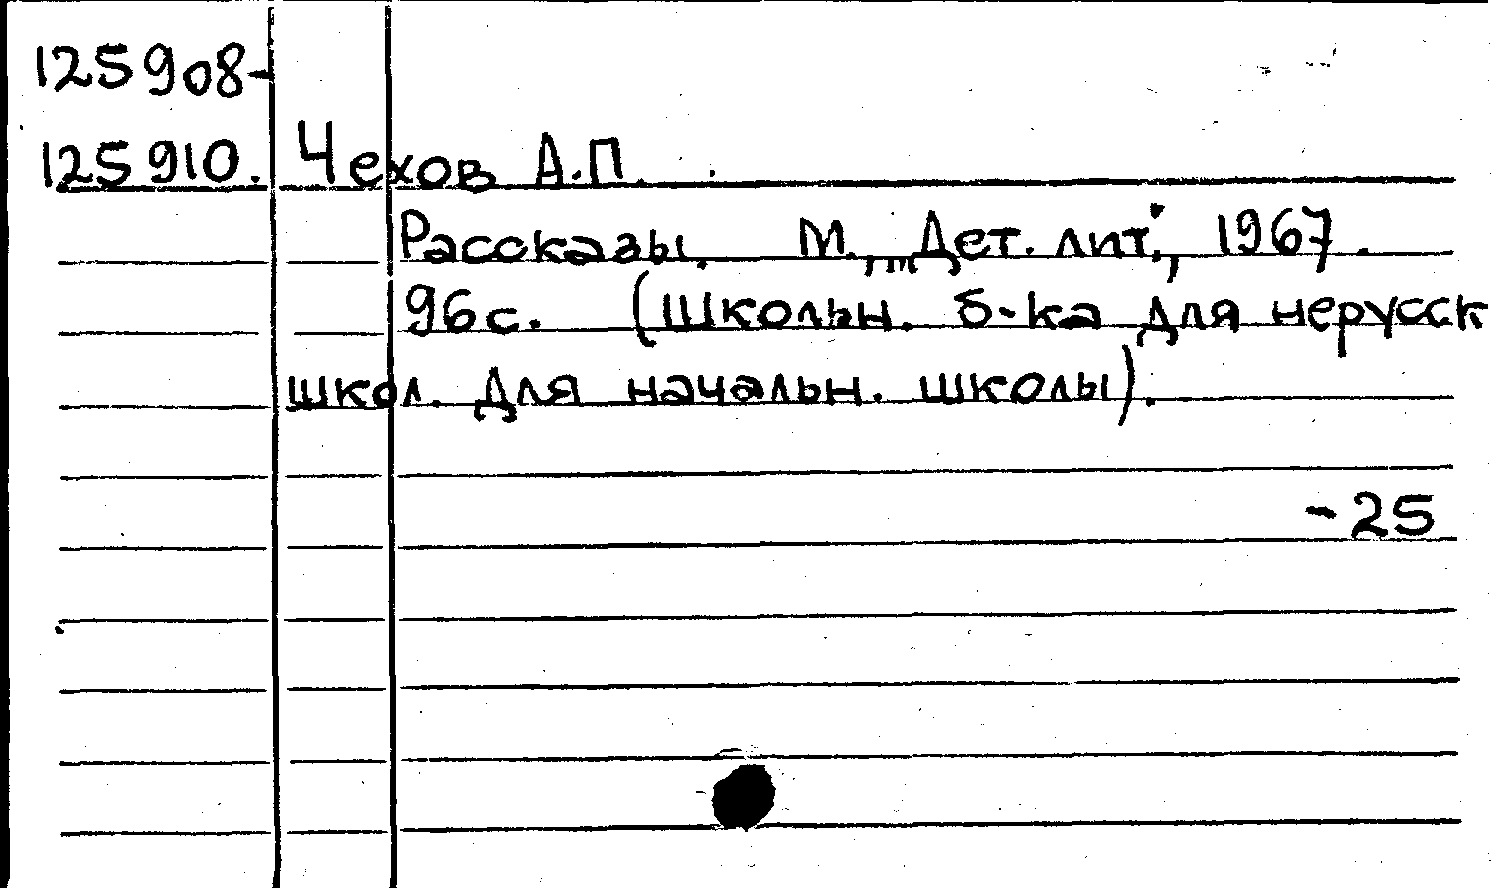 125908-
125910. Чехов А.П.
Рассказы. М., „Дет. лит", 1967.
96с. (Школьн. б-ка для нерусск
школ. Для начальн. школы).
-25